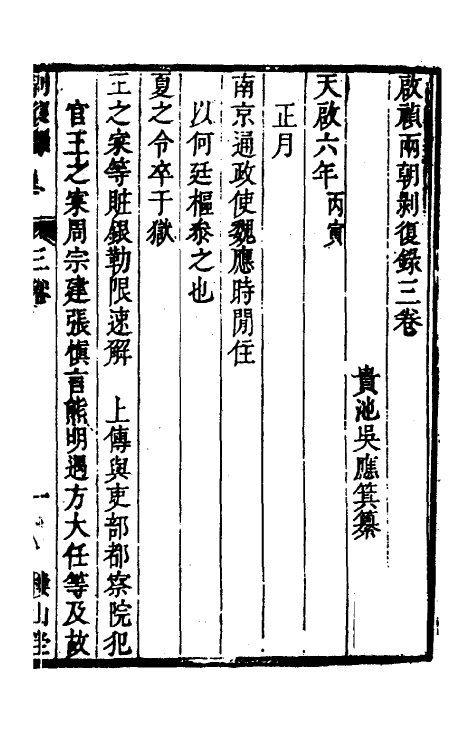 啟禎兩朝剝復錄三卷
貴池吳應箕纂
天啟六年丙寅
正月
南京通政使魏應時閒住
以何廷樞叅之也
夏之令卒于獄
王之寀等贓銀勒限速解 上傳與吏部都察院犯
官王之寀周宗建張慎言熊明遇方大任等及故
剝復錄 三卷 一 樓山堂